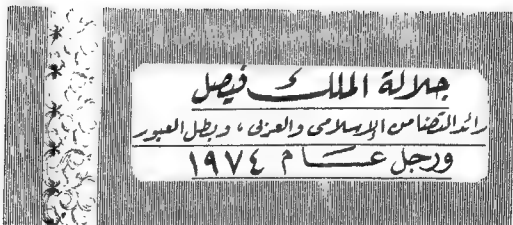 جلالة الملك فيصل
رائد التضامن الإسلامى والعربى ، وبطل العبور
ورجل عام ١٩٧٤